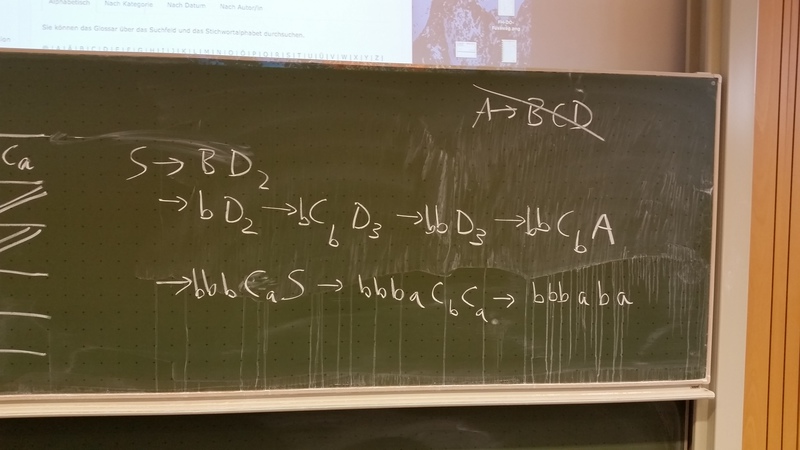 Alphabetisch Nach Kategorie Nach Datum Nach Autor/in
Sie können das Glossar über das Suchfeld und das Stichwortalphabet durchsuchen.
A → BCD
Ca
S → B D2
→ b D2 → bCb D3 → bb D3 → bb Cb A
→ bbb Ca S → bbba Cb Ca → bbbaba